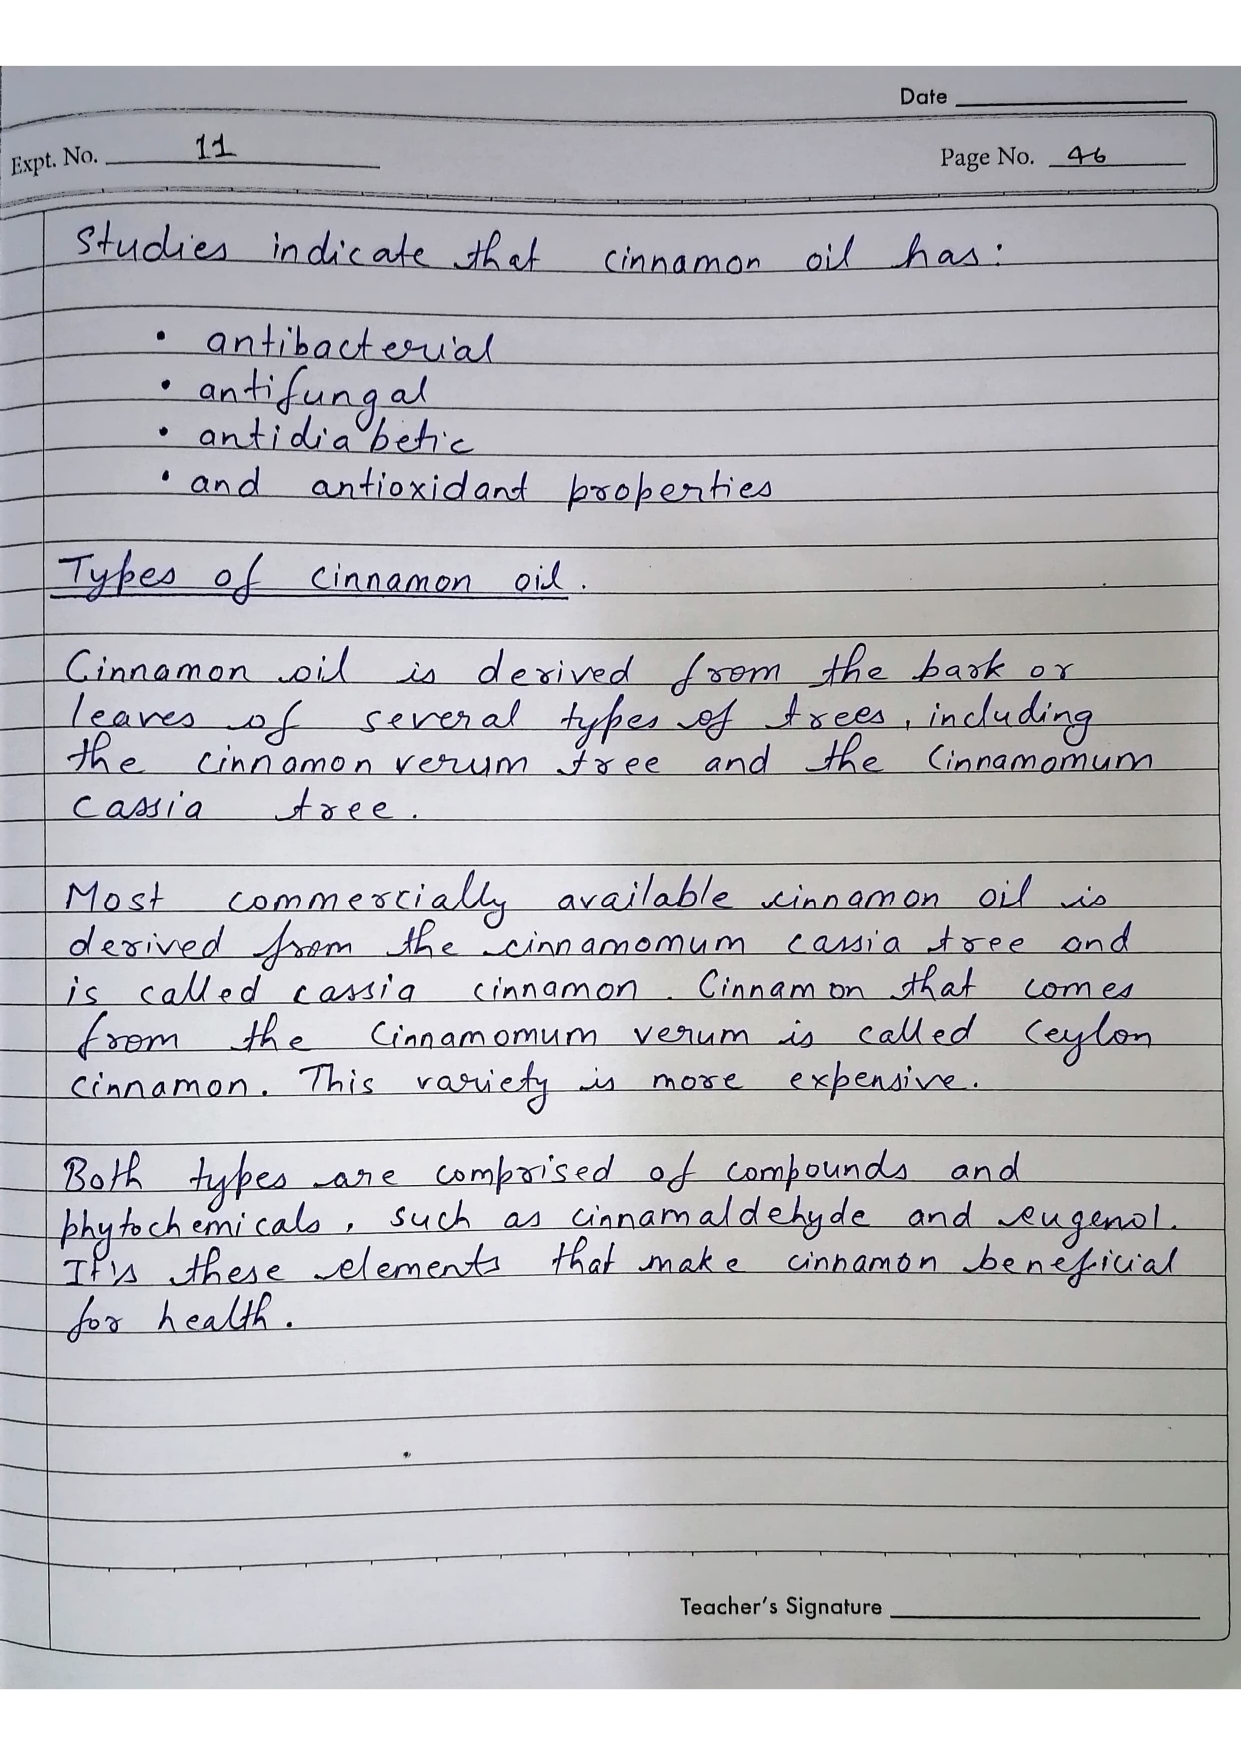 Date
Expt. No. 11
Page No. 46
Studies indicate that cinnamon oil has:
• antibacterial
• antifungal
• antidiabetic
• and antioxidant properties
Types of cinnamon oil.
Cinnamon oil is derived from the bark or
leaves of several types of trees, including
the cinnamon verum tree and the Cinnamomum
cassia tree.
Most commercially available cinnamon oil is
derived from the cinnamomum cassia tree and
is called cassia cinnamon. Cinnamon that comes
from the Cinnamomum verum is called Ceylon
cinnamon. This variety is more expensive.
Both types are comprised of compounds and
phytochemicals, such as cinnamaldehyde and eugenol.
It's these elements that make cinnamon beneficial
for health.
Teacher's Signature